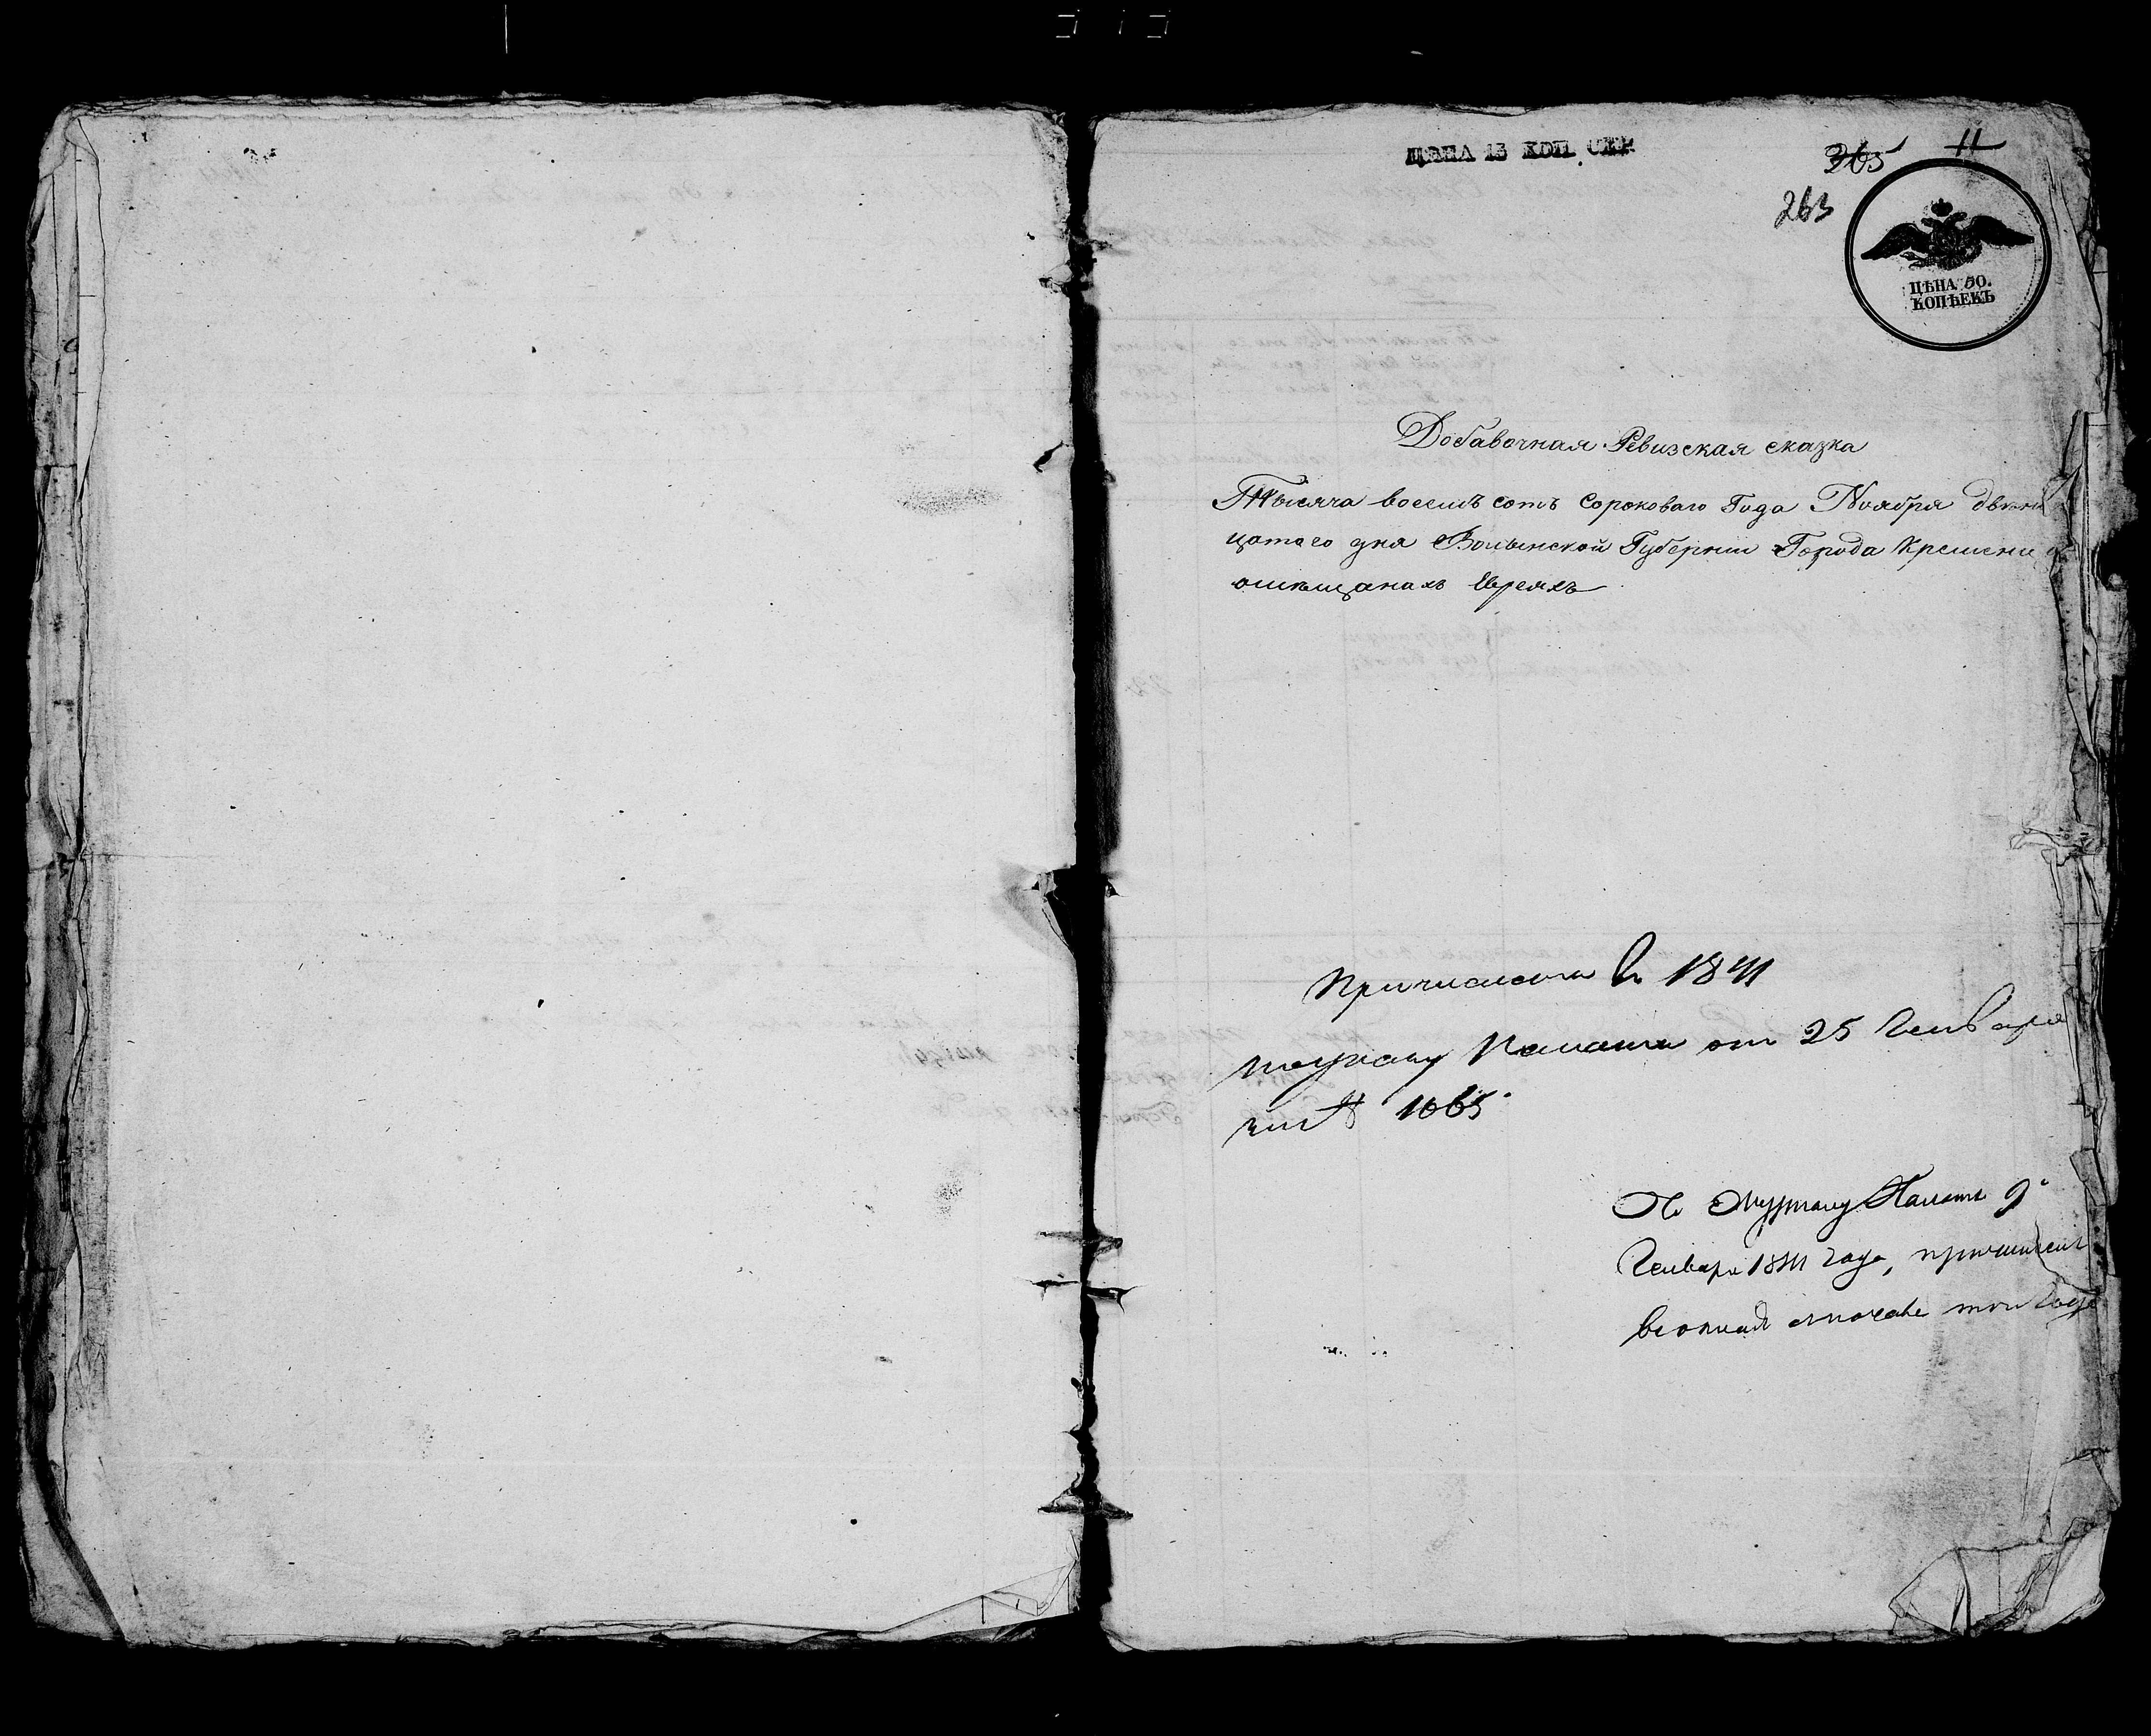 ЦѢНА 15 КОП. СЕР.
365 11
263
ЦѢНА 50.
КОПѢЕКЪ
Добавочная Ревизская сказка
Тысяча восемь сотъ Сороковаго Года Ноября двена
цатого дня Волынской Губернии Города Кременц
омѣщанахъ Евреяхъ
Причислены в 1841
Журналу Палаты от 25 Генваря
за № 1665
По Журналу Палаты 9
Генваря 1841 года, причислен